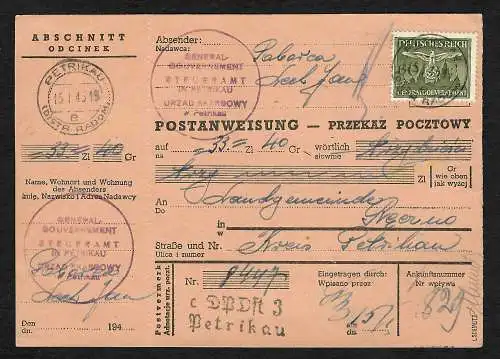 ABSCHNITT
ODCINEK
PETRIKAU
15.1.43.19
e
(DISTR. RADOM)
33.- Zl 40 Gr
Name, Wohnort und Wohnung
des Absenders
Imię, Nazwisko i Adres Nadawcy
GENERAL-
GOUVERNEMENT
STEUERAMT
IN PETRIKAU
URZĄD SKARBOWY
w Petrikau
Den
dn. 194
Absender:
Nadawca:
GENERAL-
GOUVERNEMENT
STEUERAMT
IN PETRIKAU
URZĄD SKARBOWY
w Petrikau
DEUTSCHES REICH
GENERALGOUVERNEMENT
POSTANWEISUNG — PRZEKAZ POCZTOWY
auf
na 33.- Zl 40 Gr wörtlich
słownie
Zł Gr wie oben
jak wyżej
An
Do Landgemeinde
in
w
Straße und Nr. Kreis Petrikau
Ulica i numer
Postvermerk
Adnotacje urz. poczt.
Nr. 8447
c DPDft 3
Petrikau
Eingetragen durch:
Wpisano przez:
am
dn. 15/1
Ankunftsnummer
Nr wpływu
829